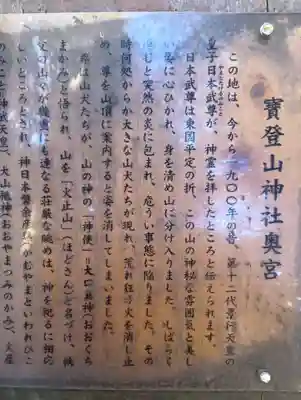 寶登山神社奥宮
この地は、今から一九〇〇年の昔、第十二代景行天皇の
皇子日本武尊が、神霊を拝したところと伝えられます。
日本武尊は東国平定の折、この山の神秘な雰囲気と美し
い姿に心ひかれ、身を清め山に分け入りました。しばらく
突然の炎に包まれ、危うい事態に陥りました。その
時何処からか大きな山犬たちが現れ、荒れ狂う火を消し止
め、尊を山頂に案内すると姿を消してしまいました。
尊は山犬たちが、山の神の「神使」=大口真神(おおぐち
まかみ)と悟られ、山を「火止山」(ほどさん)と名づけ、
にも連なる荘厳な眺めは、神を祀るに相応
しいところとされ、神日本磐余彦尊(かむやまといわれひこ
のみこと・神武天皇)、大山祗神(おおやまつみのかみ)、火産